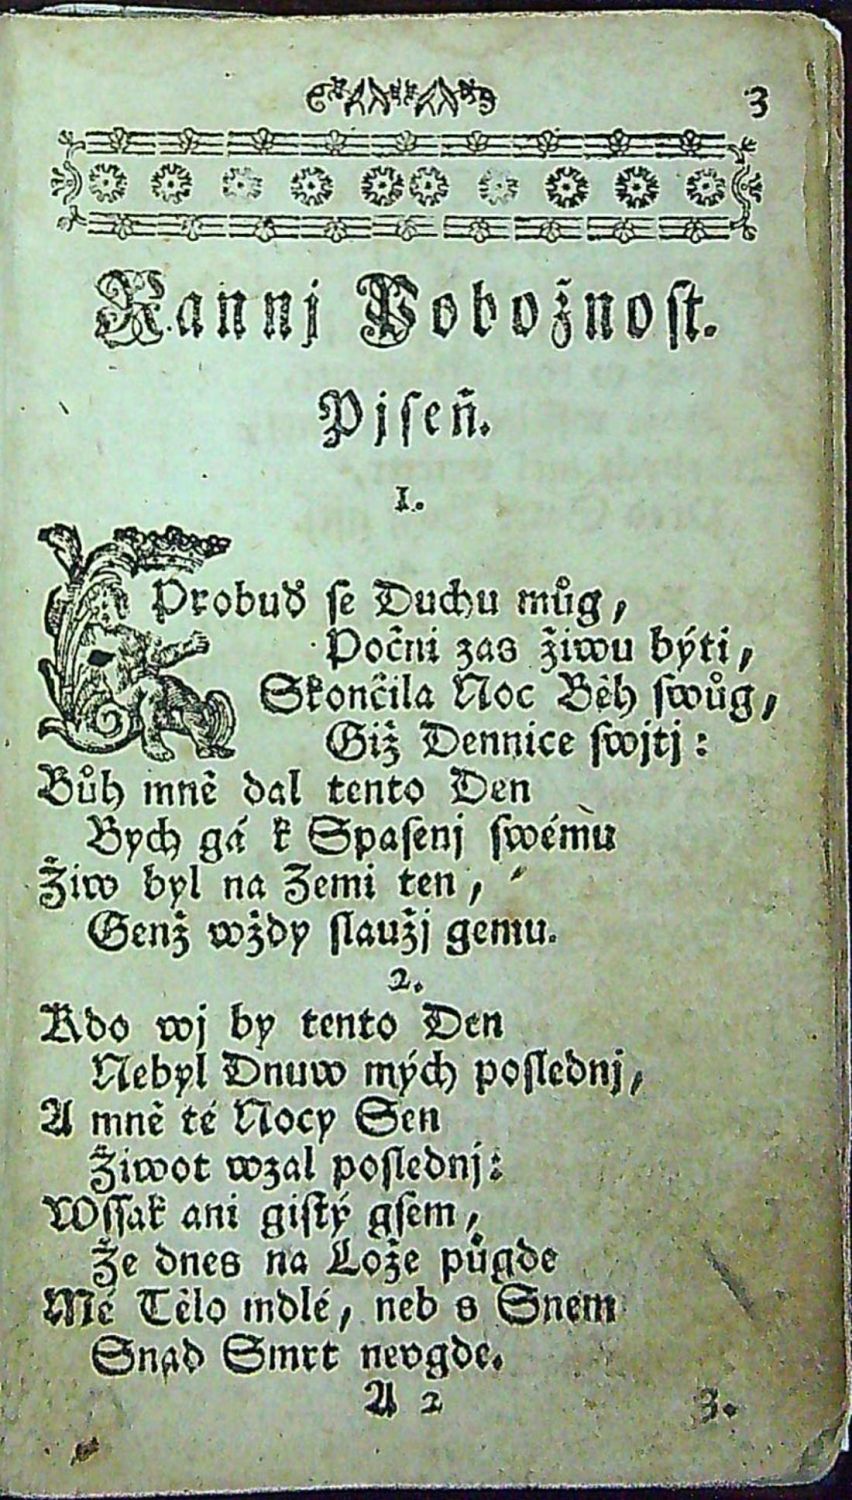 3
Rannj Pobožnost.
Pjseň.
1.
Probuď se Duchu můg,
Počni zas žiwu býti,
Skončila Noc Běh swůg,
Giž Dennice swjtj:
Bůh mně dal tento Den
Bych gá k Spasenj swému
Žiw byl na Zemi ten,
Genž wždy slaužj gemu.
2.
Kdo wj by tento Den
Nebyl Dnuw mých poslednj,
A mně té Nocy Sen
Žiwot wzal poslednj:
Wssak ani gistý gsem,
Že dnes na Lože půgde
Mé Tělo mdlé, neb s Snem
Snad Smrt neugde.
A 2
3.